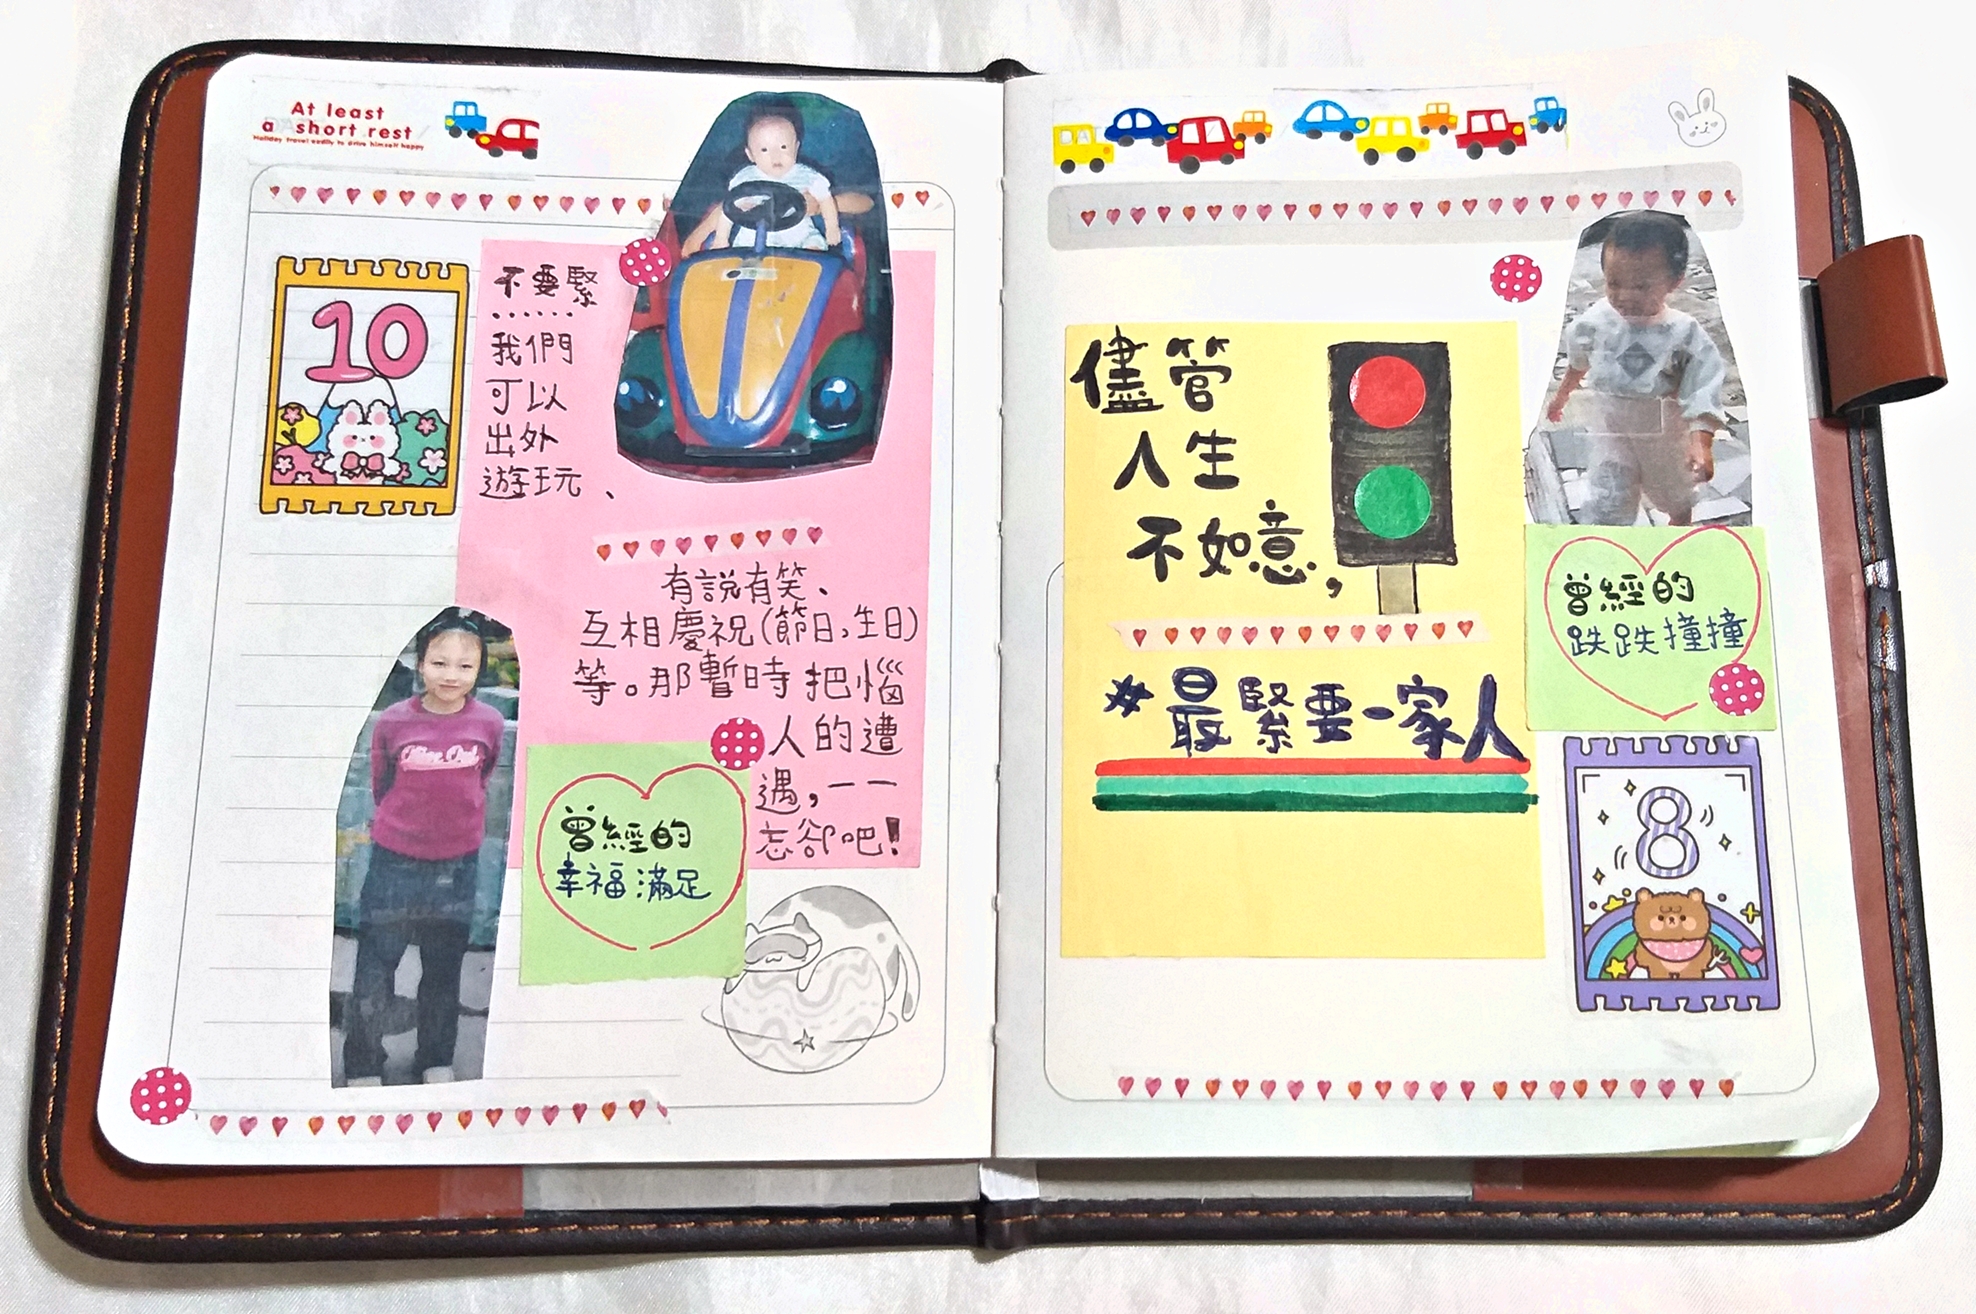 At least
a short rest
Holiday travel easily to drive himself happy
10
不要緊
......
我們
可以
出外
遊玩、
有說有笑、
互相慶祝(節日,生日)
等。那暫時把惱
人的遭
遇,一一
忘卻吧!
曾經的
幸福滿足
儘管
人生
不如意,
#最緊要一家人
曾經的
跌跌撞撞
8